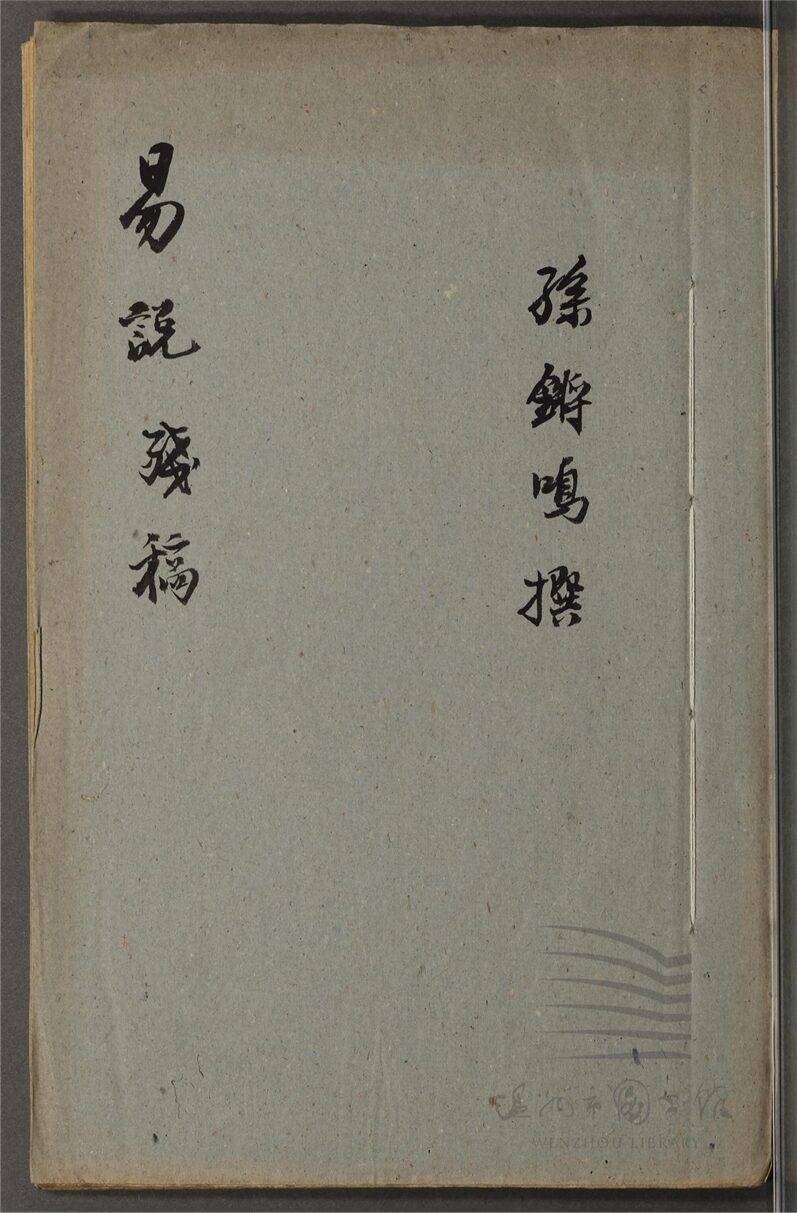 孫鏘鳴撰
易說殘稿
温州市图书馆
WENZHOU LIBRARY